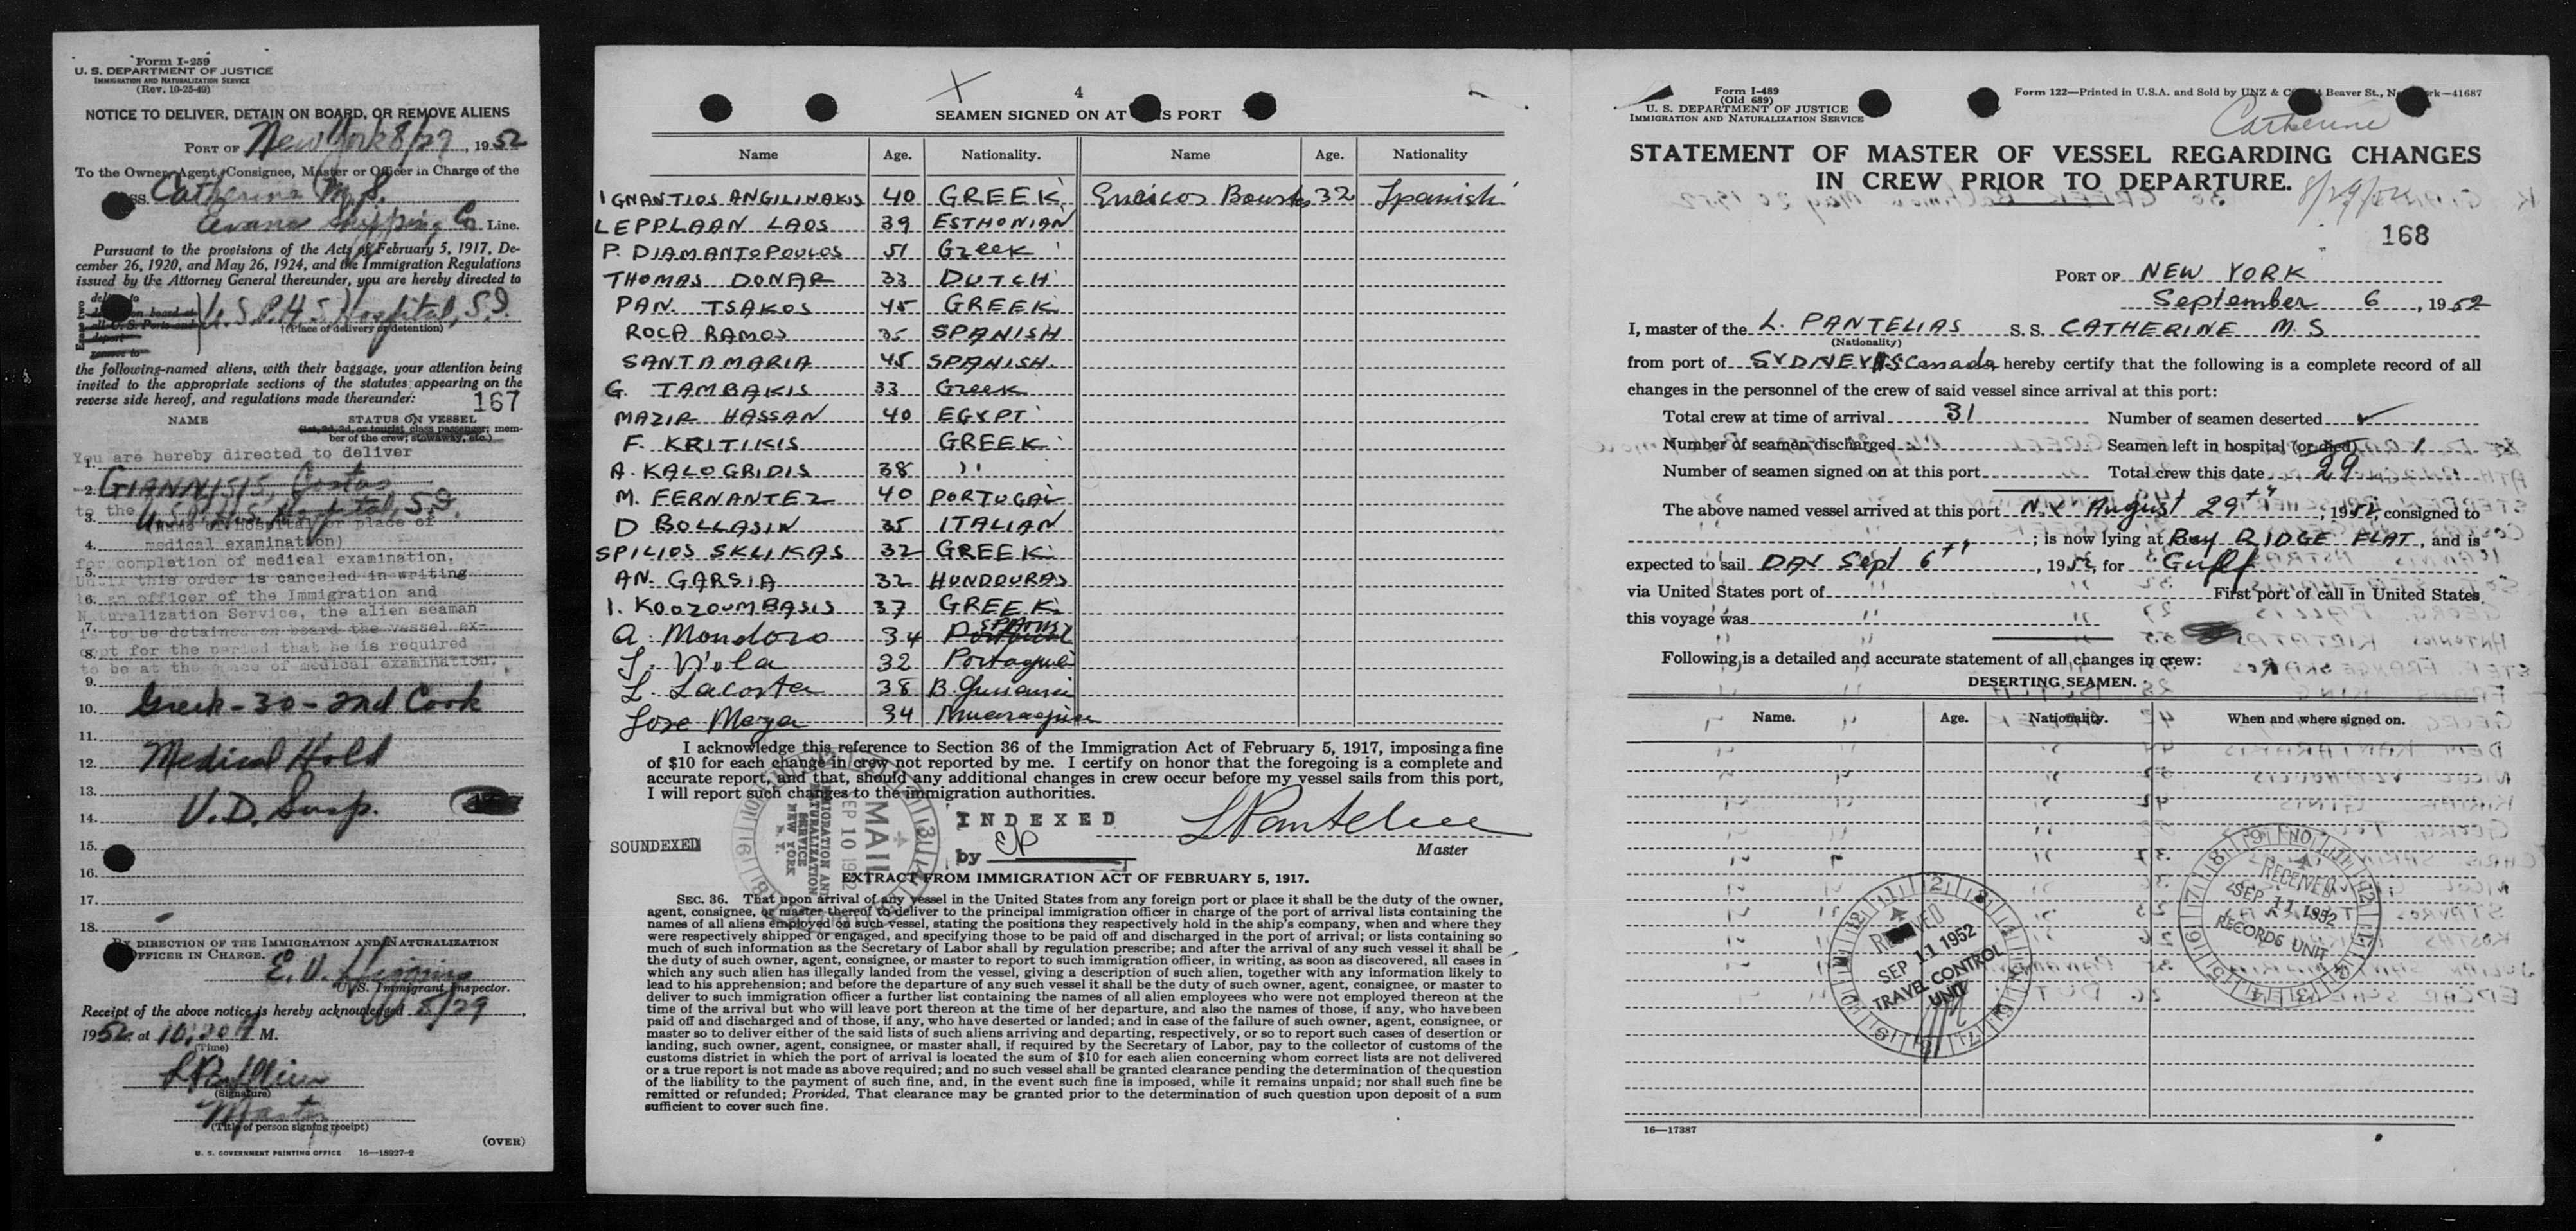 Form I-259
U. S. DEPARTMENT OF JUSTICE
IMMIGRATION AND NATURALIZATION SERVICE
(Rev. 10-25-49)
NOTICE TO DELIVER, DETAIN ON BOARD, OR REMOVE ALIENS
PORT OF New York 8/29, 1952
To the Owner, Agent, Consignee, Master or Officer in Charge of the
SS. Catherine M. S.
Evans Shipping Co Line.
Pursuant to the provisions of the Acts of February 5, 1917, De-
cember 26, 1920, and May 26, 1924, and the Immigration Regulations
issued by the Attorney General thereunder, you are hereby directed to
U. S. P. H. S. Hospital, S.I.
(Place of delivery or detention)
the following-named aliens, with their baggage, your attention being
invited to the appropriate sections of the statutes appearing on the
reverse side hereof, and regulations made thereunder:
167
NAME STATUS ON VESSEL
(1st, 2d, 3d, or tourist class passenger; mem-
ber of the crew; stowaway, etc.)
You are hereby directed to deliver
1.
2. GIANNISIS, Costas
to the U.S.P.H.S. Hospital, S.I.
3. (name of hospital or place of
4. medical examination)
for completion of medical examination.
5. Until this order is canceled in writing
6. an officer of the Immigration and
Naturalization Service, the alien seaman
7. is to be detained on board the vessel ex-
8. cept for the period that he is required
to be at the place of medical examination.
9.
10. Greek - 30 - 2nd Cook
11.
12. Medical Hold
13.
14. V.D. Susp.
15.
16.
17.
18.
BY DIRECTION OF THE IMMIGRATION AND NATURALIZATION
OFFICER IN CHARGE.
E. V.
U. S. Immigrant Inspector.
Receipt of the above notice is hereby acknowledged 8/29,
1952 at 10:20 A M.
(Time)
(Signature)
Master
(Title of person signing receipt)
(OVER)
U. S. GOVERNMENT PRINTING OFFICE 16—18927-2
4
SEAMEN SIGNED ON AT THIS PORT
Name Age. Nationality. Name Age. Nationality
IGNANTIOS ANGILINAKIS 40 GREEK Enricos 32 Spanish
LEPPLAAN LAOS 39 ESTHONIAN
P. DIAMANTOPOULOS 51 Greek
THOMAS DONAR 33 DUTCH
PAN. TSAKOS 45 GREEK
ROCA RAMOS 35 SPANISH
SANTAMARIA 45 SPANISH.
G. TAMBAKIS 33 Greek
MAZIR HASSAN 40 EGYPT
F. KRITIKIS GREEK
A. KALOGRIDIS 38 ''
M. FERNANTEZ 40 PORTUGAL
D BOLLASIN 35 ITALIAN
SPILIOS SKLIKAS 32 GREEK
AN. GARSIA 32 HUNDOURAS
I. KOOZOUMBASIS 37 GREEK
A. Mondoro 34 SPANISH
J. Viola 32
L. Lacosta 38 B.
Jose Maya 34
I acknowledge this reference to Section 36 of the Immigration Act of February 5, 1917, imposing a fine
of $10 for each change in crew not reported by me. I certify on honor that the foregoing is a complete and
accurate report, and that, should any additional changes in crew occur before my vessel sails from this port,
I will report such changes to the immigration authorities.
MAIL
SEP 10 1952
IMMIGRATION AND
NATURALIZATION
SERVICE
NEW YORK
N. Y.
INDEXED
SOUNDEXED
by
Master
EXTRACT FROM IMMIGRATION ACT OF FEBRUARY 5, 1917.
SEC. 36. That upon arrival of any vessel in the United States from any foreign port or place it shall be the duty of the owner,
agent, consignee, or master thereof to deliver to the principal immigration officer in charge of the port of arrival lists containing the
names of all aliens employed on such vessel, stating the positions they respectively hold in the ship's company, when and where they
were respectively shipped or engaged, and specifying those to be paid off and discharged in the port of arrival; or lists containing so
much of such information as the Secretary of Labor shall by regulation prescribe; and after the arrival of any such vessel it shall be
the duty of such owner, agent, consignee, or master to report to such immigration officer, in writing, as soon as discovered, all cases in
which any such alien has illegally landed from the vessel, giving a description of such alien, together with any information likely to
lead to his apprehension; and before the departure of any such vessel it shall be the duty of such owner, agent, consignee, or master to
deliver to such immigration officer a further list containing the names of all alien employees who were not employed thereon at the
time of the arrival but who will leave port thereon at the time of her departure, and also the names of those, if any, who have been
paid off and discharged and of those, if any, who have deserted or landed; and in case of the failure of such owner, agent, consignee, or
master so to deliver either of the said lists of such aliens arriving and departing, respectively, or so to report such cases of desertion or
landing, such owner, agent, consignee, or master shall, if required by the Secretary of Labor, pay to the collector of customs of the
customs district in which the port of arrival is located the sum of $10 for each alien concerning whom correct lists are not delivered
or a true report is not made as above required; and no such vessel shall be granted clearance pending the determination of the question
of the liability to the payment of such fine, and, in the event such fine is imposed, while it remains unpaid; nor shall such fine be
remitted or refunded; Provided, That clearance may be granted prior to the determination of such question upon deposit of a sum
sufficient to cover such fine.
Form I-489
(Old 689)
U. S. DEPARTMENT OF JUSTICE
IMMIGRATION AND NATURALIZATION SERVICE
Form 122—Printed in U.S.A. and Sold by UNZ & CO., Beaver St., New York—41687
Catherine
STATEMENT OF MASTER OF VESSEL REGARDING CHANGES
IN CREW PRIOR TO DEPARTURE.
8/29/52
168
PORT OF NEW YORK
September 6, 1952
I, master of the L. PANTELIAS S. S. CATHERINE M. S
(Nationality)
from port of SYDNEY NS Canada hereby certify that the following is a complete record of all
changes in the personnel of the crew of said vessel since arrival at this port:
Total crew at time of arrival 31 Number of seamen deserted
Number of seamen discharged Seamen left in hospital (or died) 1
Number of seamen signed on at this port Total crew this date 29
The above named vessel arrived at this port N.Y August 29th, 1952, consigned to
; is now lying at Bay RIDGE FLAT, and is
expected to sail DAY Sept 6th, 1952, for Gulf
via United States port of First port of call in United States
this voyage was
Following is a detailed and accurate statement of all changes in crew:
DESERTING SEAMEN.
Name. Age. Nationality. When and where signed on.
RECEIVED
SEP 11 1952
TRAVEL CONTROL
UNIT
RECEIVED
SEP 11 1952
RECORDS UNIT
16—17387